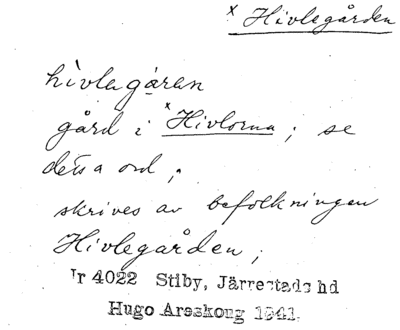 x Hivlegården
hìvlagáran
gård i x Hivlorna; se
detta ord;
skrives av befolkningen
Hivlegården;
Ir 4022 Stiby, Järrestads hd
Hugo Areskoug 1941.